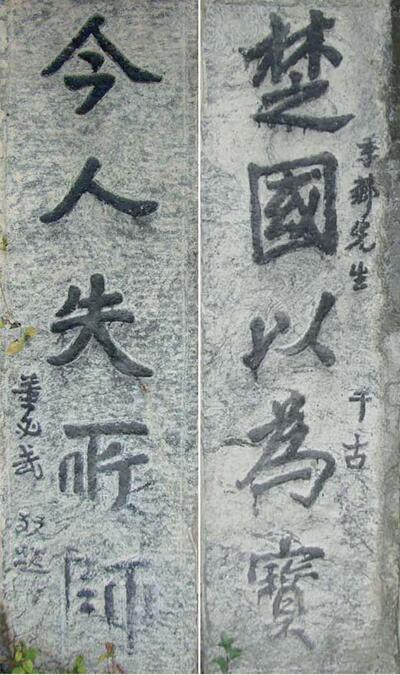 楚國以為寶
季薌先生 千古
今人失所師
董必武 敬題